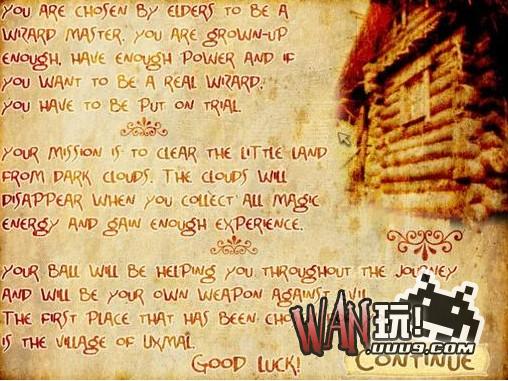 YOU ARE CHOSEN BY ELDERS TO BE A
WIZARD MASTER. YOU ARE GROWN-UP
ENOUGH, HAVE ENOUGH POWER AND IF
YOU WANT TO BE A REAL WIZARD,
YOU HAVE TO BE PUT ON TRIAL.
YOUR MISSION IS TO CLEAR THE LITTLE LAND
FROM DARK CLOUDS. THE CLOUDS WILL
DISAPPEAR WHEN YOU COLLECT ALL MAGIC
ENERGY AND GAIN ENOUGH EXPERIENCE.
YOUR BALL WILL BE HELPING YOU THROUGHOUT THE JOURNEY
AND WILL BE YOUR OWN WEAPON AGAINST
THE FIRST PLACE THAT HAS BEEN
IS THE VILLAGE OF UXMAL.
GOOD LUCK!
CONTINUE
WAN玩!
.UUU9.COM